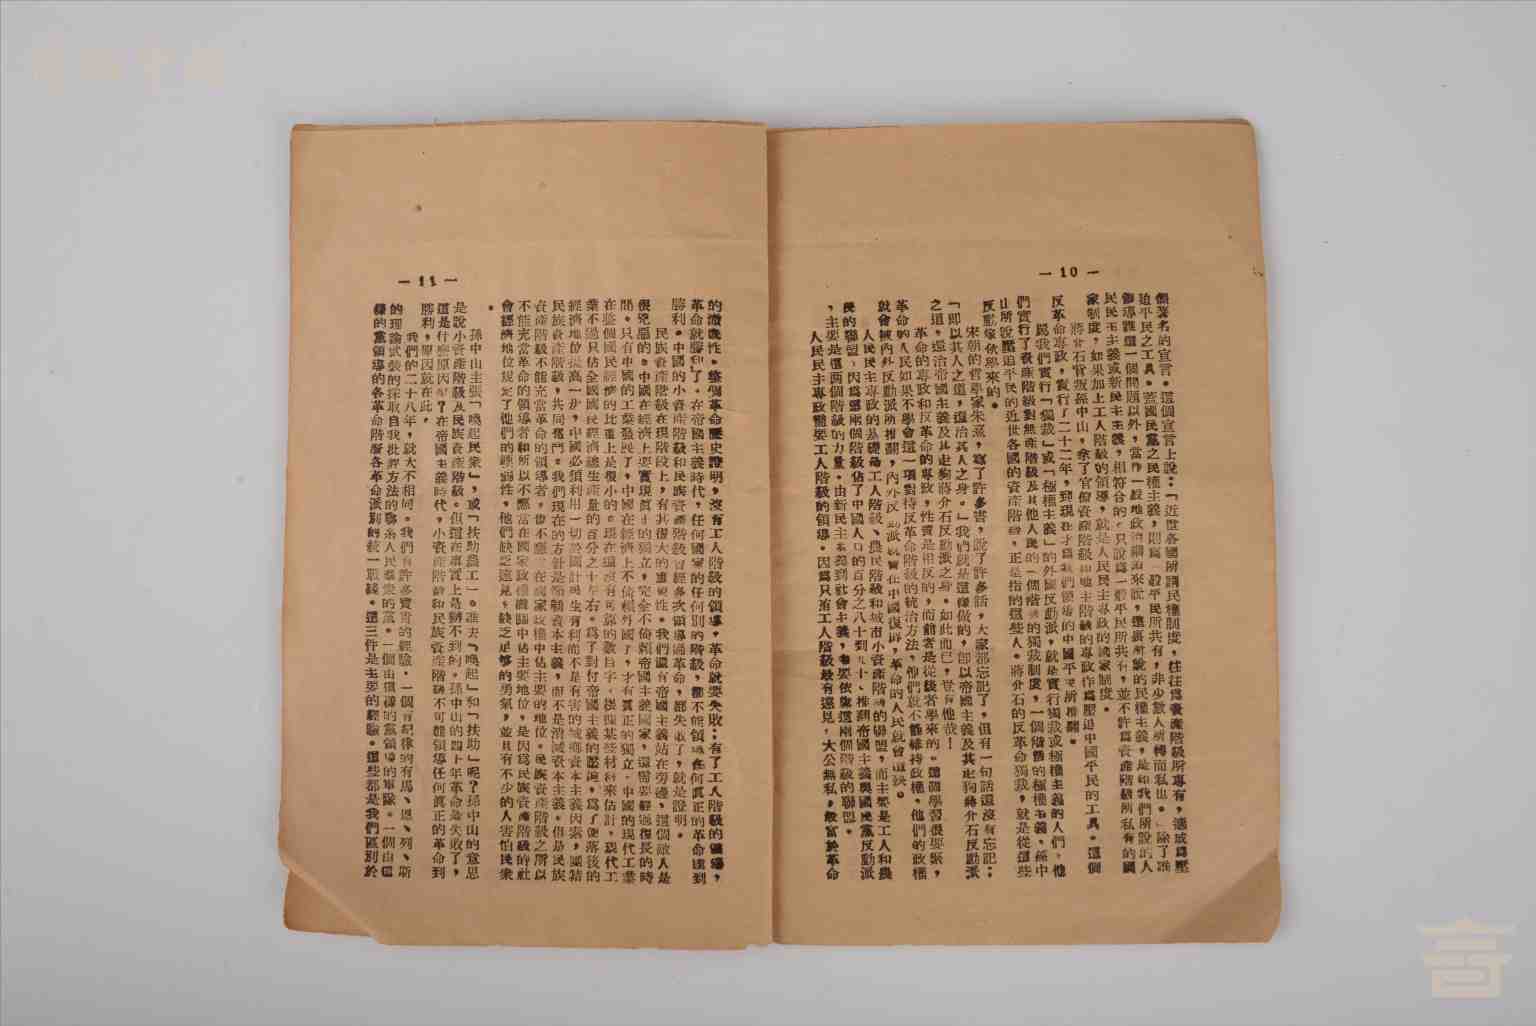 —10—
個著名的宣言。這個宣言上說:「近世各國所謂民權制度,往往爲資產階級所專有,適成爲壓
迫平民之工具。若國民黨之民權主義,則爲一般平民所共有,非少數人所得而私也。」除了誰
領導誰這一個問題以外,當作一般地政治綱領來說,這裏所說的民權主義,是和我們所說的人
民民主主義或新民主主義,相符合的。只說爲一般平民所共有,並不許爲資產階級所私有的國
家制度,如果加上工人階級的領導,就是人民民主專政的國家制度。
蔣介石背叛孫中山,拿了官僚資產階級和地主階級的專政作爲壓迫中國平民的工具。這個
反革命專政,實行了二十二年,到現在才爲我們領導的中國平民所推翻。
罵我們實行「獨裁」或「極權主義」的外國反動派,就是實行獨裁或極權主義的人們。他
們實行了資產階級對無產階級及其他人民的一個階級的獨裁制度,一個階級的極權主義。孫中
山所說壓迫平民的近世各國的資產階級,正是指的這些人。蔣介石的反革命獨裁,就是從這些
反動傢伙學來的。
宋朝的哲學家朱熹,寫了許多書,說了許多話,大家都忘記了,但有一句話還沒有忘記:
「即以其人之道,還治其人之身。」我們就是這樣做的,即以帝國主義及其走狗蔣介石反動派
之道,還治帝國主義及其走狗蔣介石反動派之身。如此而已,豈有他哉!
革命的專政和反革命的專政,性質是相反的,而前者是從後者學來的。這個學習很要緊,
革命的人民如果不學會這一項對待反革命階級的統治方法,他們就不能維持政權,他們的政權
就會被內外反動派所推翻,內外反動派就會在中國復辟,革命的人民就會遭殃。
人民民主專政的基礎是工人階級、農民階級和城市小資產階級的聯盟,而主要是工人和農
民的聯盟,因爲這兩個階級佔了中國人口的百分之八十到九十。推翻帝國主義與國民黨反動派
,主要是這兩個階級的力量。由新民主主義到社會主義,主要依靠這兩個階級的聯盟。
人民民主專政需要工人階級的領導。因爲只有工人階級最有遠見,大公無私,最富於革命
—11—
的徹底性。整個革命歷史證明,沒有工人階級的領導,革命就要失敗;有了工人階級的領導,
革命就勝利了。在帝國主義時代,任何國家的任何別的階級,都不能領導任何真正的革命達到
勝利。中國的小資產階級和民族資產階級曾經多次領導過革命,都失敗了,就是證明。
民族資產階級在現階段上,有其很大的重要性。我們還有帝國主義站在旁邊,這個敵人是
很兇惡的。中國在經濟上要實現真正的獨立,完全不倚賴帝國主義國家,還需要經過很長的時
間。只有中國的工業發展了,中國在經濟上不倚賴外國了,才有真正的獨立。中國的現代工業
在整個國民經濟的比重上是很小的。現在還沒有可靠的數目字,根據某些材料來估計,現代工
業不過只佔全國國民經濟總生產量的百分之十左右。爲了對付帝國主義的壓迫,爲了使落後的
經濟地位提高一步,中國必須利用一切於國計民生有利而不是有害的城鄉資本主義因素,團結
民族資產階級,共同奮鬥。我們現在的方針是節制資本主義,而不是消滅資本主義。但是民族
資產階級不能充當革命的領導者,也不應當在國家政權中佔主要的地位。民族資產階級之所以
不能充當革命的領導者和所以不應當在國家政權機關中佔主要地位,是因爲民族資產階級的社
會經濟地位規定了他們的軟弱性,他們缺乏遠見,缺乏足够的勇氣,並且有不少的人害怕民衆
。
孫中山主張「喚起民衆」,或「扶助農工」。誰去「喚起」和「扶助」呢?孫中山的意思
是說小資產階級及民族資產階級。但這在事實上是辦不到的。孫中山的四十年革命是失敗了,
這是什麼原因呢?在帝國主義時代,小資產階級和民族資產階級不可能領導任何真正的革命到
勝利,原因就在此。
我們的二十八年,就大不相同。我們有許多寶貴的經驗。一個有紀律的有馬、恩、列、斯
的理論武裝的採取自我批評方法的聯系人民羣衆的黨。一個由這樣的黨領導的軍隊。一個由這
樣的黨領導的各革命階層各革命派別的統一戰線。這三件是主要的經驗。這些都是我們區別於